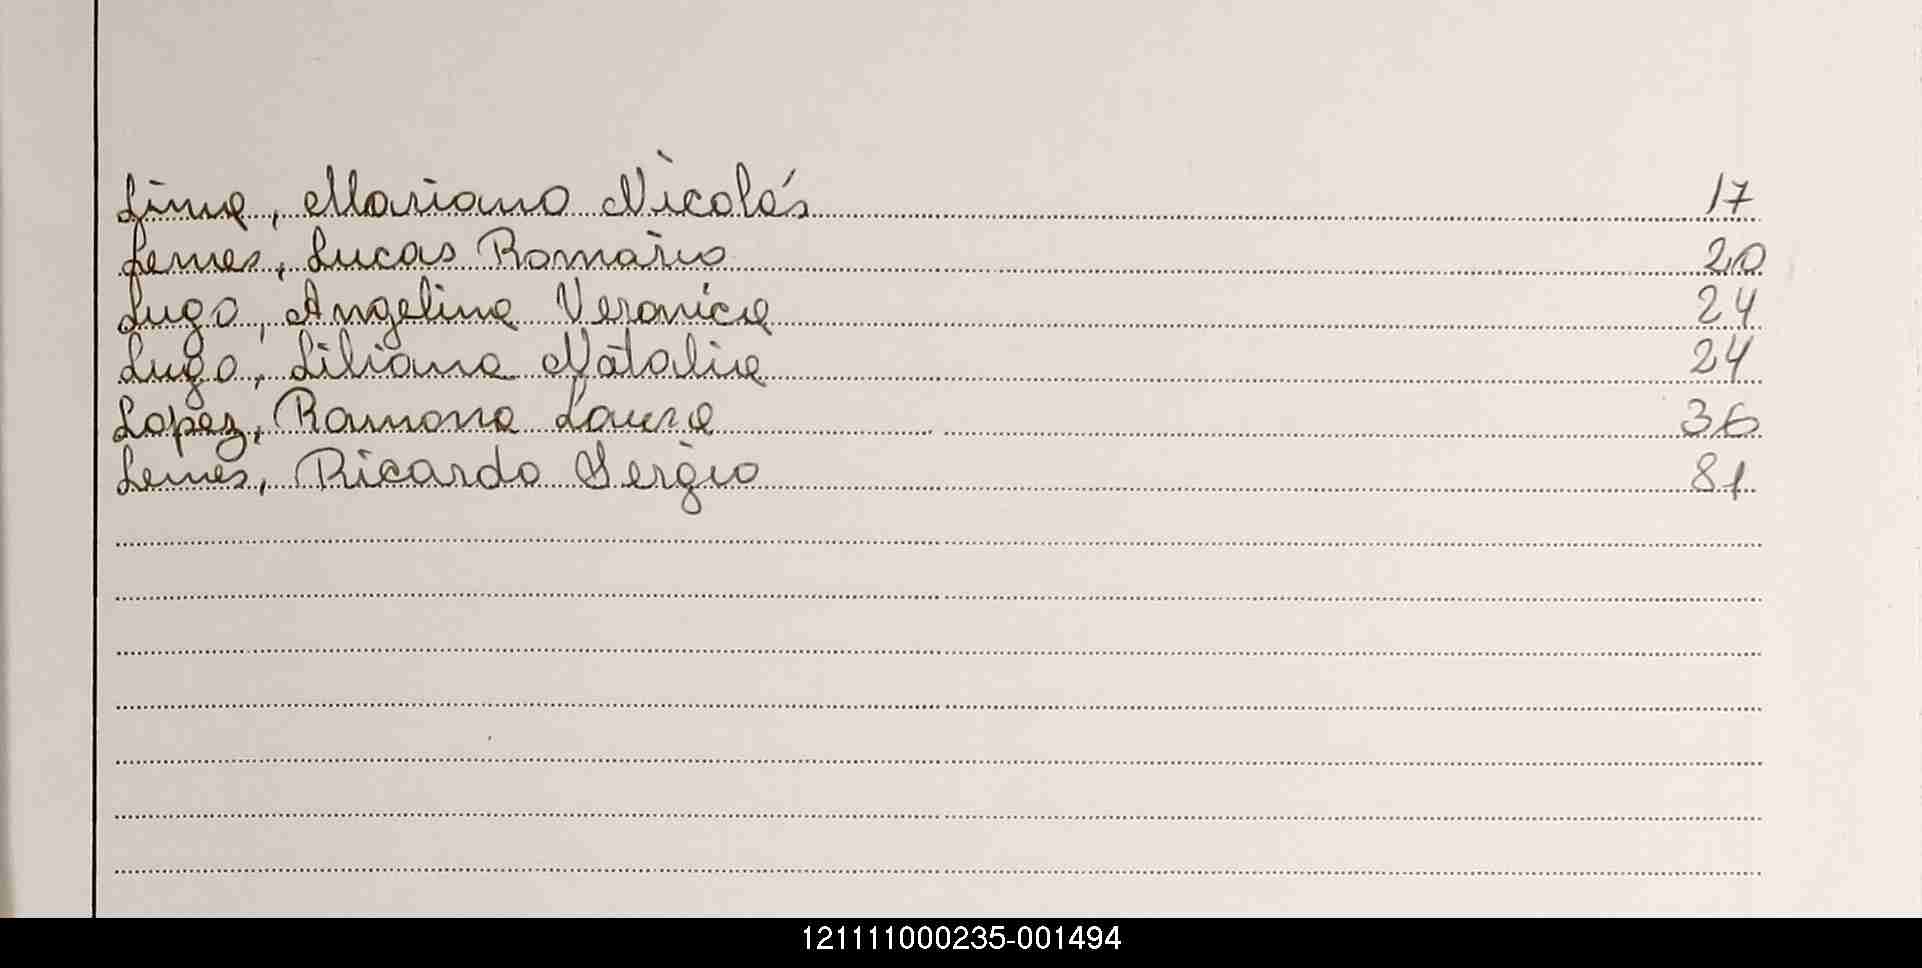 Lima, Mariano Nicolás 17
Lemes, Lucas Romário 20
Lugo, Angelina Veronica 24
Lugo, Liliana Natalia 24
Lopez, Ramona Laura 36
Lemes, Ricardo Sergio 81
121111000235-001494